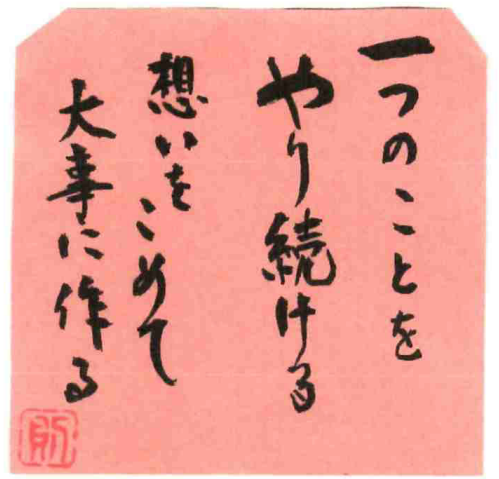 一つのことを
やり続ける
想いを
こめて
大事に作る
則